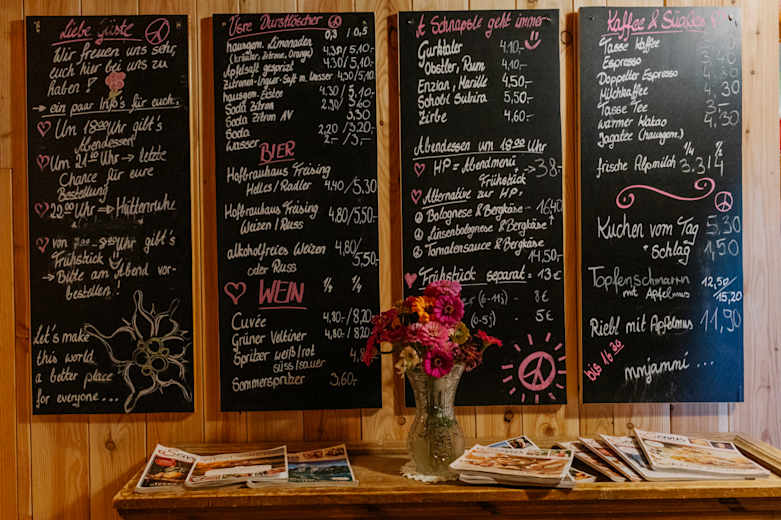 Liebe Gäste
Wir freuen uns sehr,
euch hier bei uns zu
haben!
→ ein paar Info's für euch.
Um 18:00 Uhr gibt's
Abendessen
Um 21:00 Uhr → letzte
Chance für eure
Bestellung
22:00 Uhr → Hüttenruhe
von Uhr gibt's
Frühstück
→ Bitte am Abend vor-
bestellen!
Let's make
this world
a better place
for everyone...
Usre Durstlöscher
0,3 / 0,5
hausgem. Limonaden 4,30/5,10.-
(Kräuter, Zitrone, Orange)
Apfelsaft gespritzt 4,30/5,10.-
Zitronen-Ingwer-Saft m. Wasser 4,30/5,10
hausgem. Eistee 4,30/5,10.-
Soda Zitron 2,90/3,60
Soda Zitron AV 3,30
Soda 2,20/3,30
Wasser
BIER
Hofbräuhaus Traising
Helles / Radler 4,40/5,30
Hofbräuhaus Traising
Weizen / Russ 4,80/5,50-
alkoholfreies Weizen 4,80/5,50-
oder Russ
WEIN 1/8 1/4
Cuvée 4,80-/8,20
Grüner Veltliner 4,80-/8,20
Spritzer weiß/rot
süss/sauer
Sommerspritzer 5,60-
A Schnapsle geht immer
Gurktaler 4,10.-
Obstler, Rum 4,10.-
Enzian, Marille 4,50.-
Schobi Subira 5,50.-
Zirbe 4,60.-
Abendessen um 18:00 Uhr
HP = Abendmenü → 38.-
Frühstück
Alternative zur HP,
Bolognese & Bergkäse - 16,40
Linsenbolognese & Bergkäse
Tomatensauce & Bergkäse 14,50.-
Frühstück separat = 13€
(6-11j) - 8€
- 5€
Kaffee & Süaßes
Tasse Kaffee
Espresso
Doppelter Espresso
Milchkaffee
Tasse Tee
warmer Kakao
Jagatee (hausgem.)
frische Alpmilch
Kuchen vom Tag 5,30
+ Schlag 1,50
Topfenschmarrn 12,50/
mit Apfelmus 15,20
Riebl mit Apfelmus 11,90
bis 16:30
mnjammi...